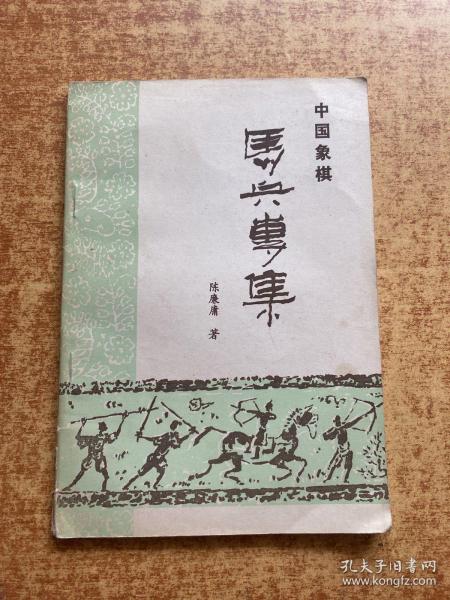 中国象棋
馬兵專集
陈廉庸 著
孔夫子旧书网
www.kongfz.com